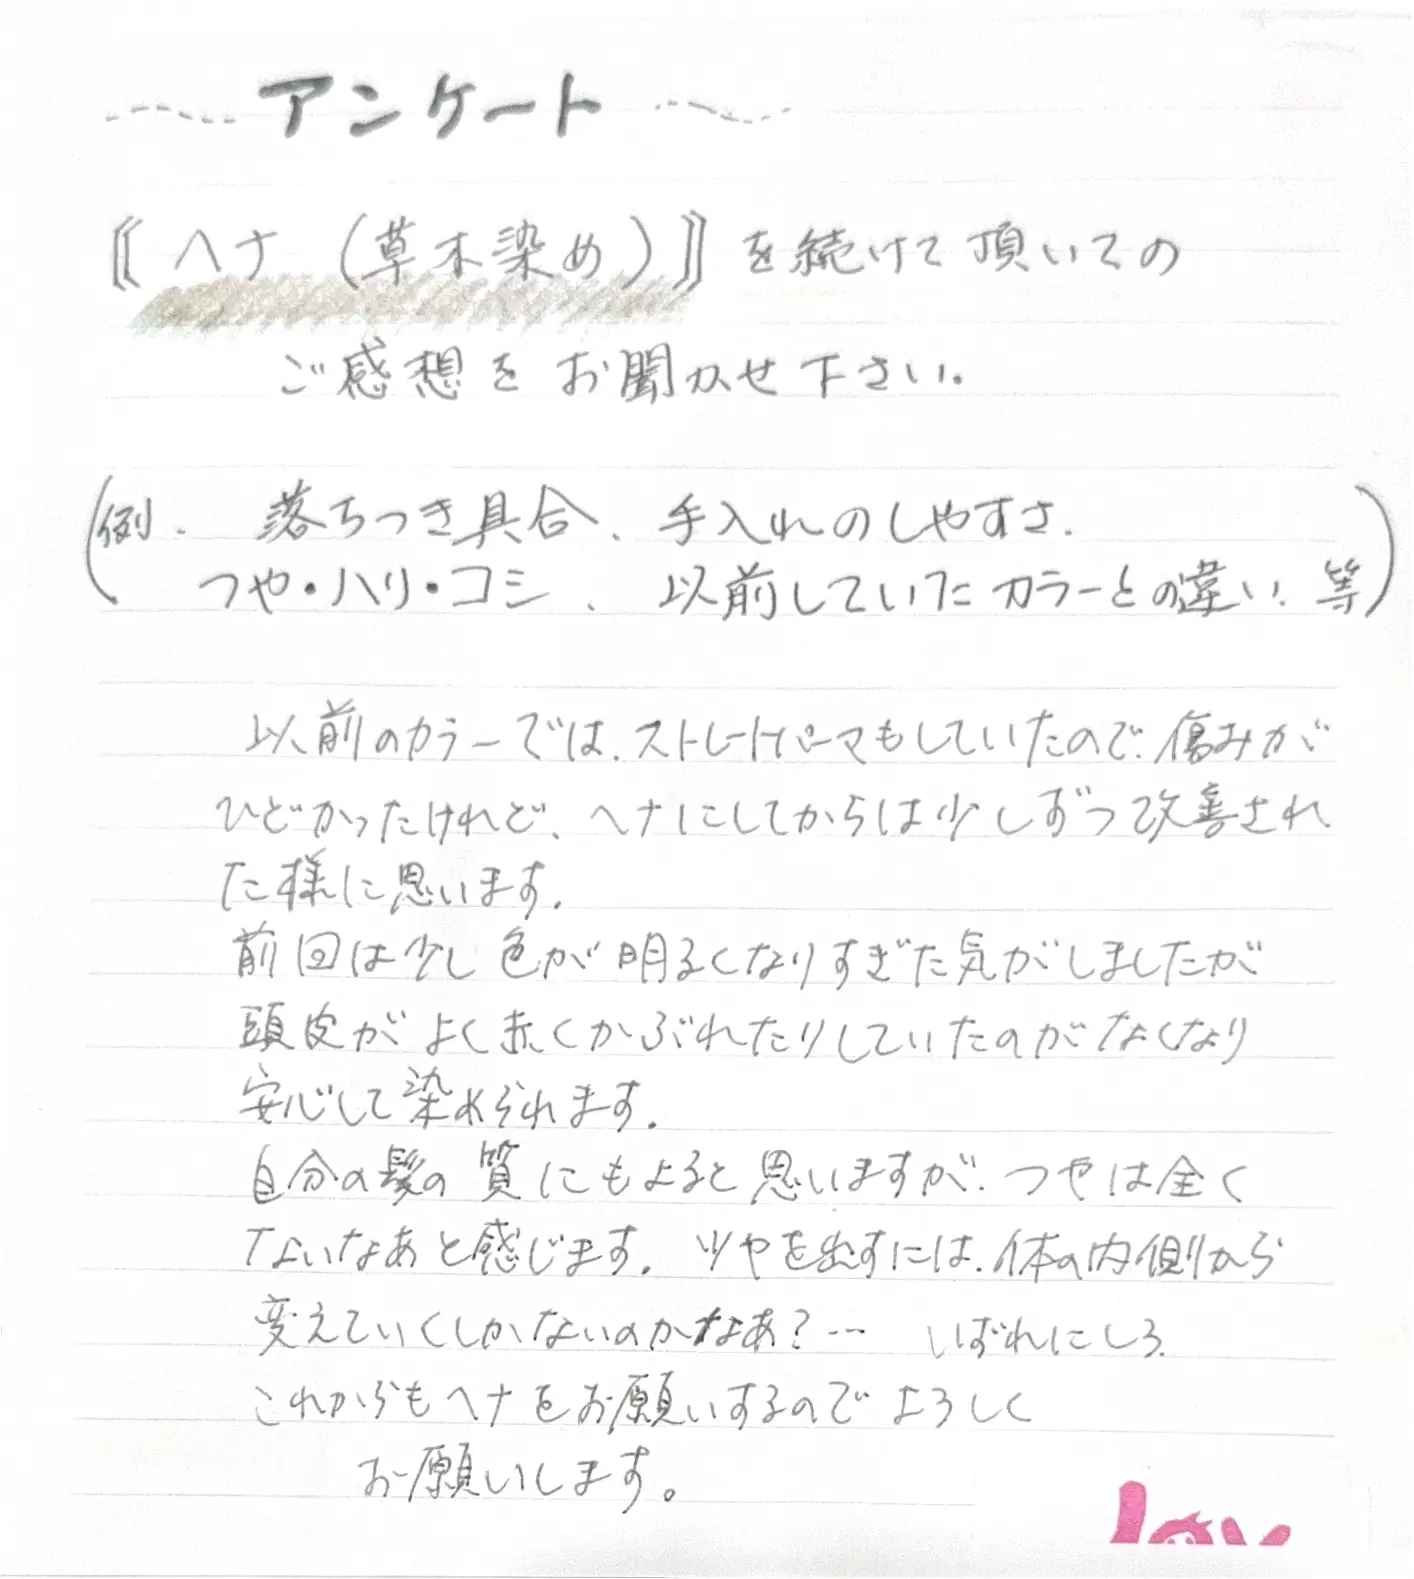 アンケート
⟪ヘナ（草木染め）⟫を続けて頂いての
ご感想をお聞かせ下さい。
（例. 落ちつき具合、手入れのしやすさ.
つや・ハリ・コシ、以前していたカラーとの違い. 等）
以前のカラーでは、ストレートパーマもしていたので、傷みが
ひどかったけれど、ヘナにしてからは少しずつ改善され
た様に思います。
前回は少し色が明るくなりすぎた気がしましたが
頭皮がよく赤くかぶれたりしていたのがなくなり
安心して染められます。
自分の髪の質にもよると思いますが、つやは全く
ないなあと感じます。ツヤを出すには、体の内側から
変えていくしかないのかなあ？… いずれにしろ、
これからもヘナをお願いするのでよろしく
お願いします。